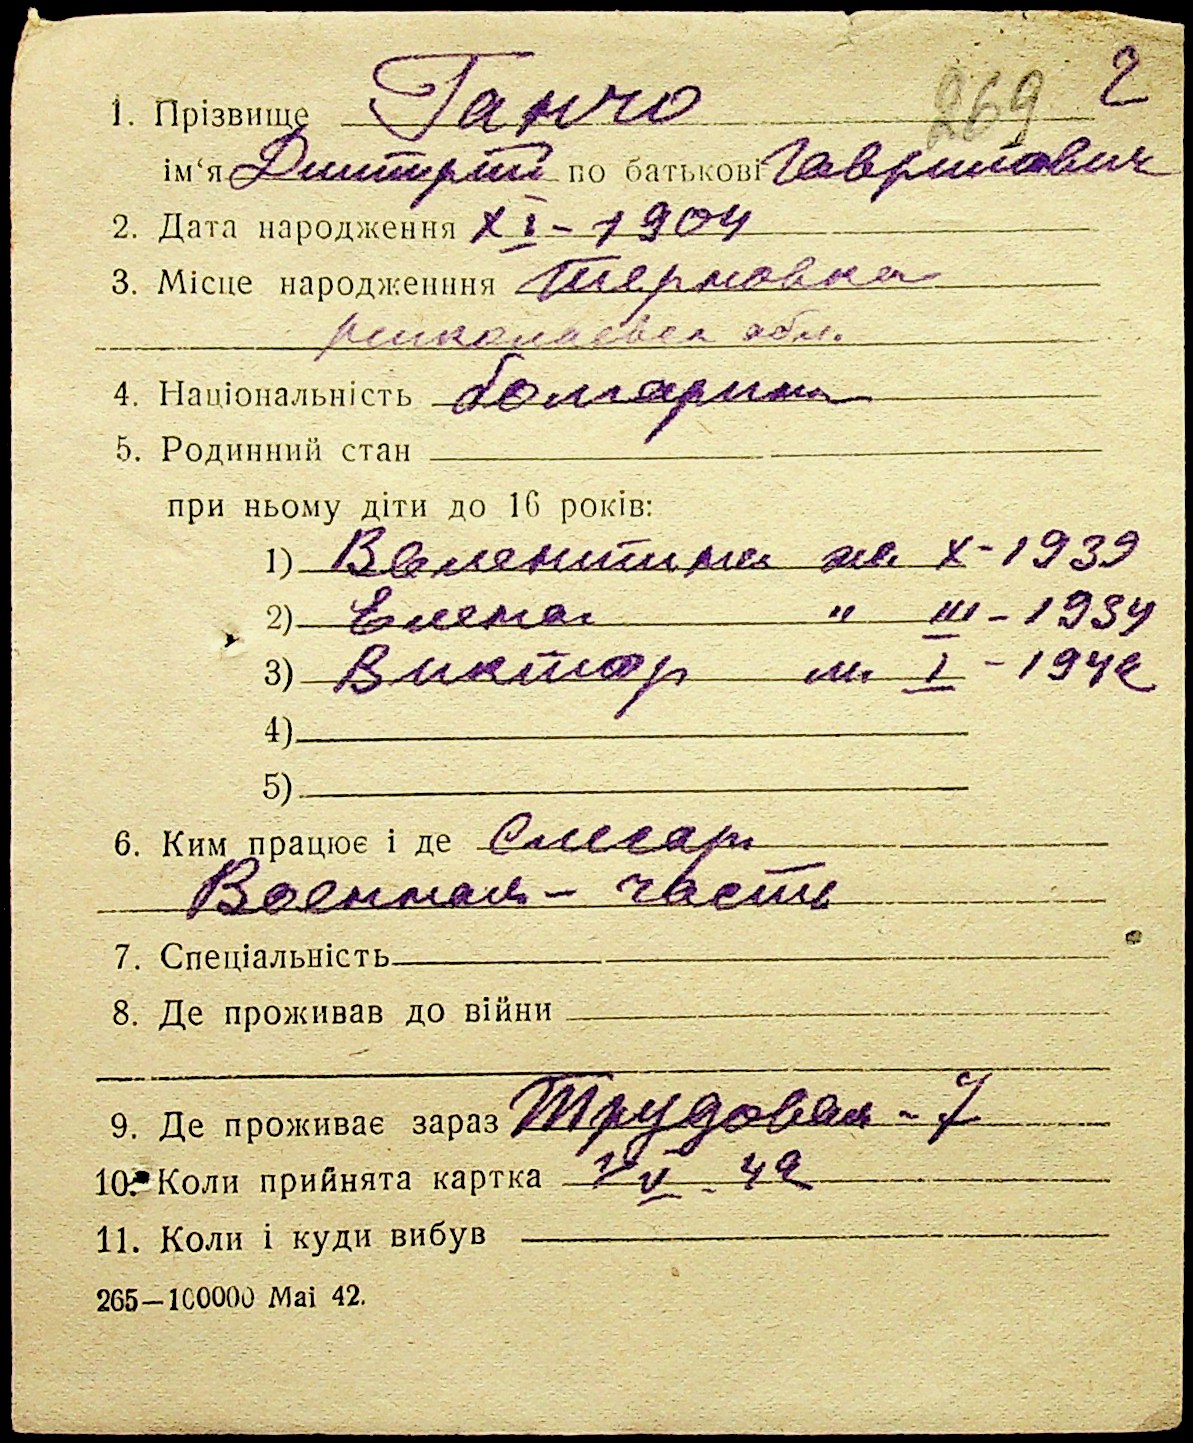 269 2
1. Прізвище Ганчо
ім‘я Дмитрий по батькові Гаврилович
2. Дата народження XI - 1904
3. Місце народженння Терновка
николаевск обл.
4. Національність болгарин
5. Родинний стан
при ньому діти до 16 років:
1) Валентина ж X - 1939
2) Елена " III - 1934
3) Виктор м. I - 1942
4)
5)
6. Ким працює і де Слесарь
Военная - часть
7. Спеціальність
8. Де проживав до війни
9. Де проживає зараз Трудовая - 7
10. Коли прийнята картка 7 V - 42
11. Коли і куди вибув
265—100000 Mai 42.